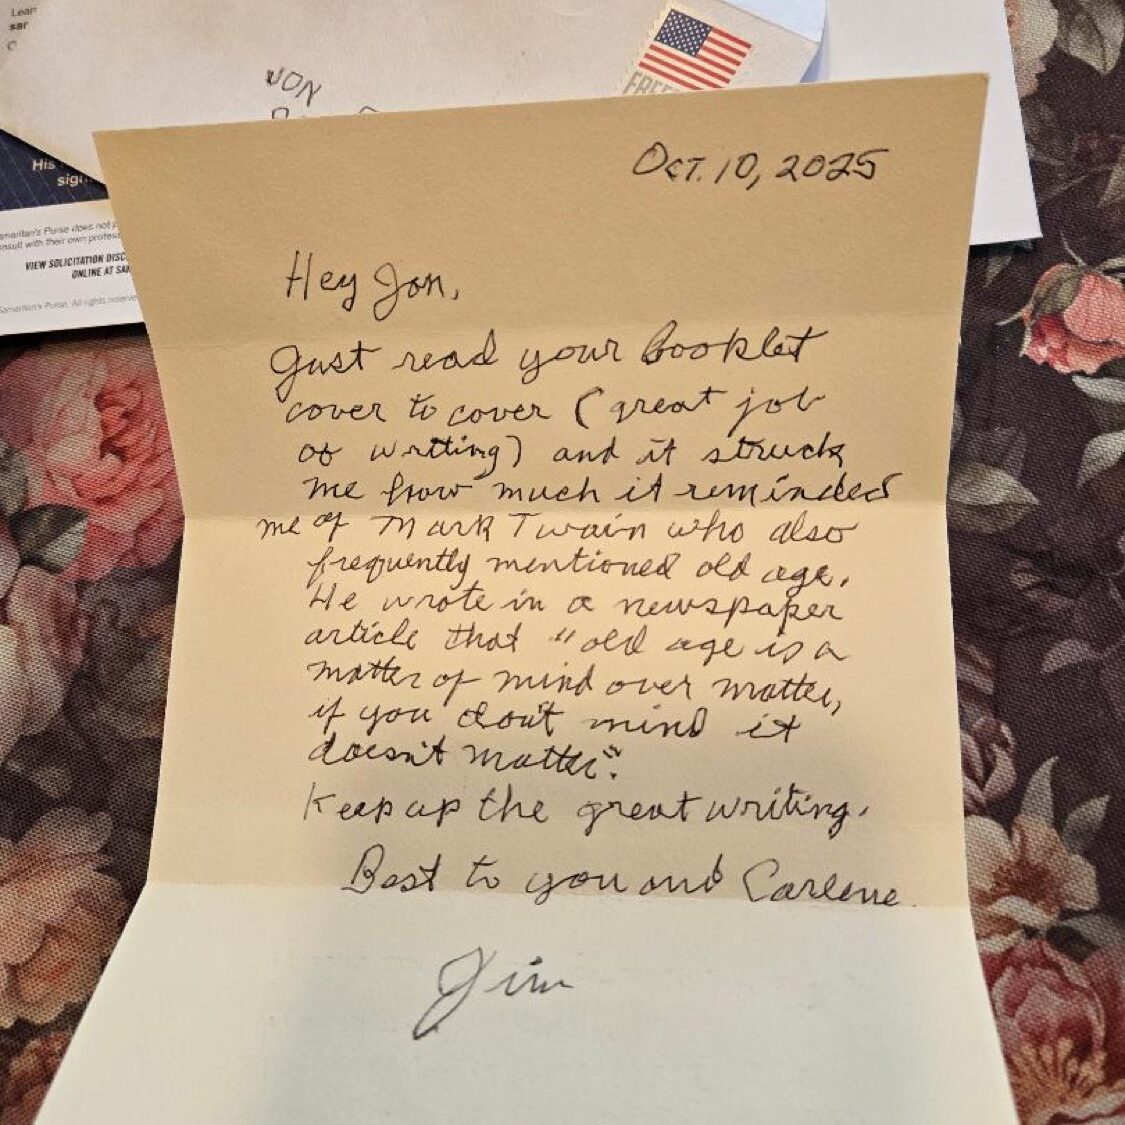 Lear
sar
JON
FREE
His
sign
amaritan's Purse does not p
onsult with their own profess
VIEW SOLICITATION DISC
ONLINE AT SAM
Samaritan's Purse. All rights reserve
Oct. 10, 2025
Hey Jon,
Just read your booklet
cover to cover (great job
of writing) and it struck
me how much it reminded
me of Mark Twain who also
frequently mentioned old age.
He wrote in a newspaper
article that "old age is a
matter of mind over matter,
if you don't mind it
doesn't matter".
Keep up the great writing.
Best to you and Carlene.
Jim